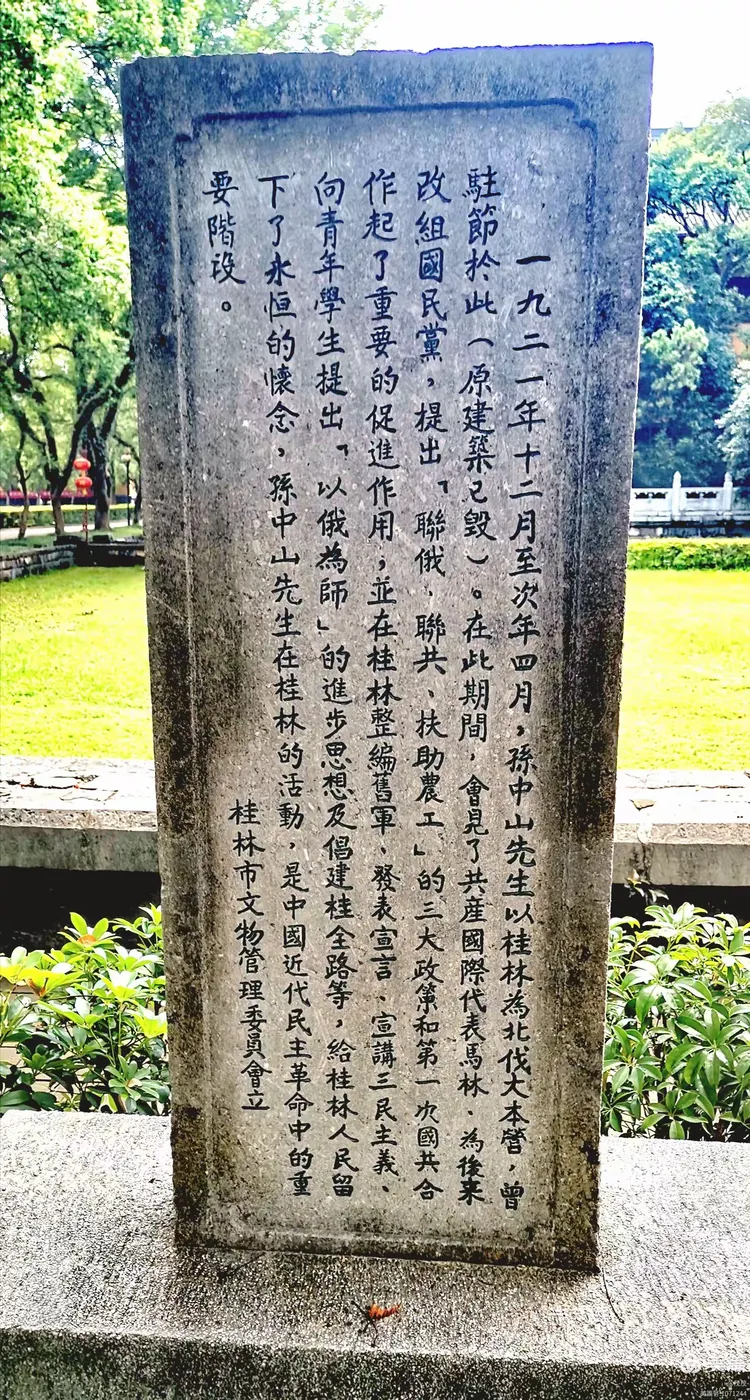 一九二一年十二月至次年四月，孫中山先生以桂林為北伐大本營，曾
駐節於此（原建築已毀）。在此期間，會見了共産國際代表馬林、為後來
改組國民黨，提出「聯俄、聯共、扶助農工」的三大政策和第一次國共合
作起了重要的促進作用；並在桂林整編舊軍、發表宣言、宣講三民主義、
向青年學生提出「以俄為師」的進步思想及倡建桂全路等，給桂林人民留
下了永恒的懷念，孫中山先生在桂林的活動，是中國近代民主革命中的重
要階段。
桂林市文物管理委員會立